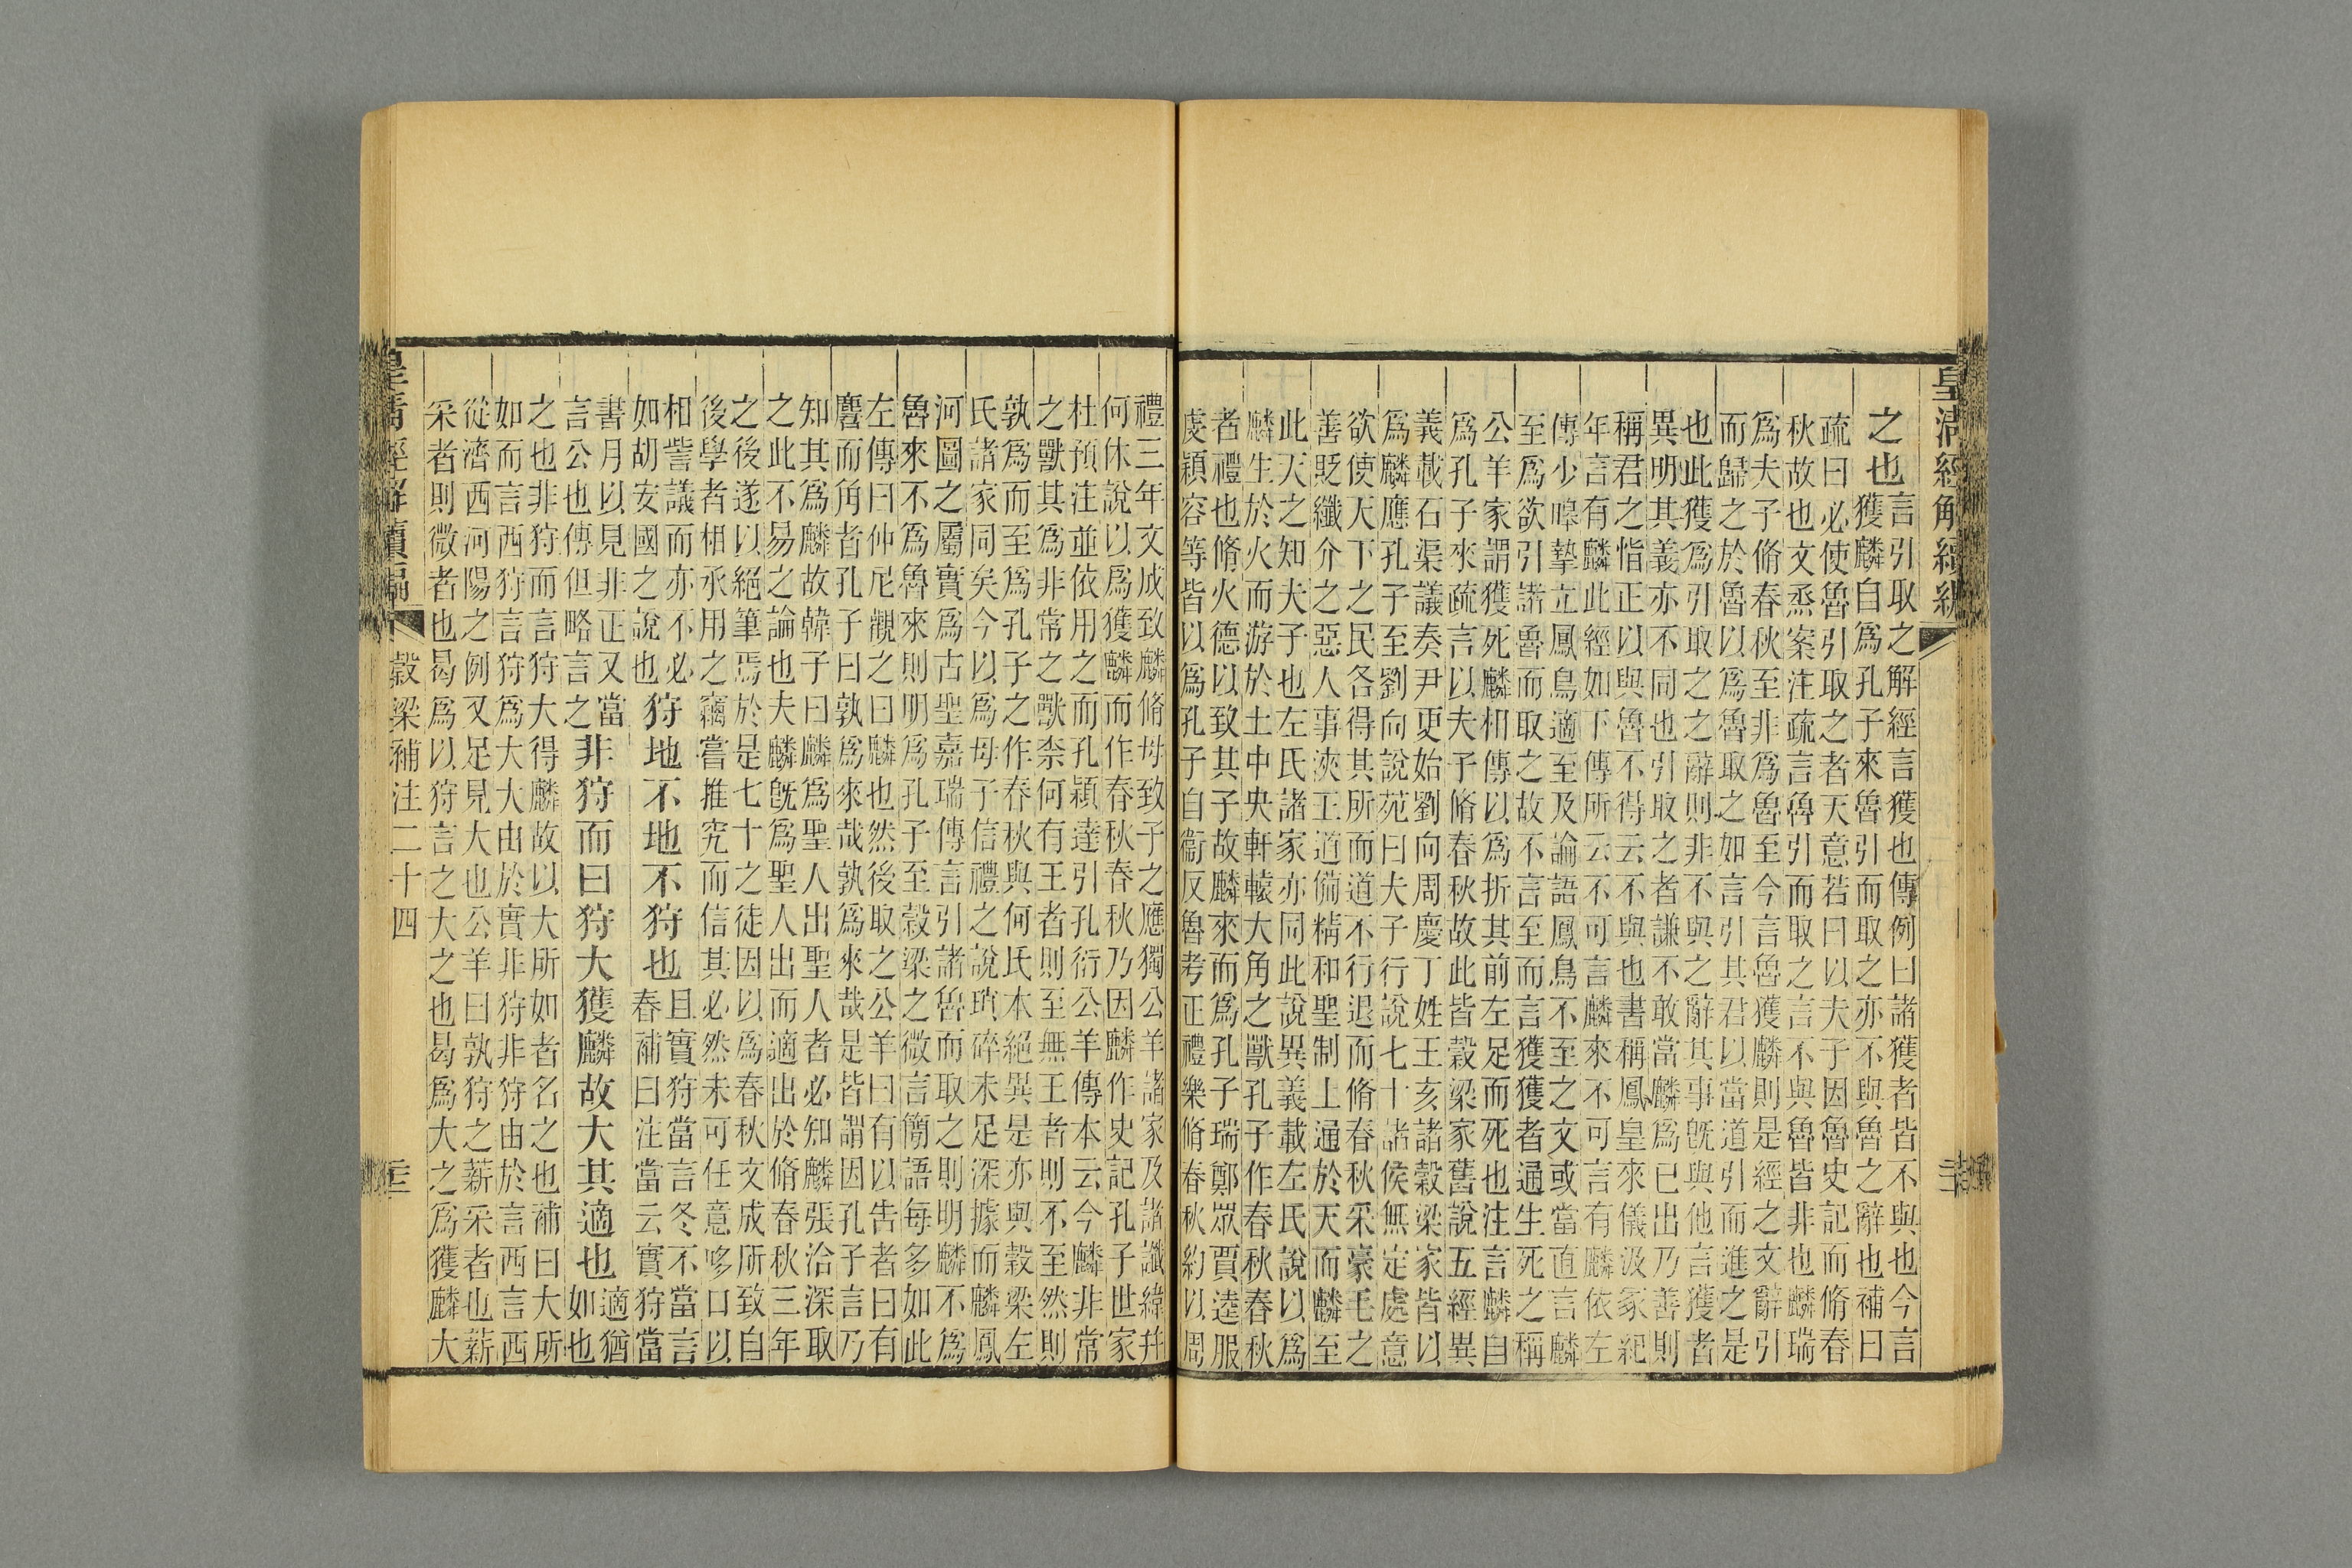 皇清經解續編
之也
言引取之解經言獲也傳例曰諸獲者皆不與也今言
獲麟自爲孔子來魯引而取之亦不與魯之辭也補曰
疏曰必使魯引取之者天意若曰以夫子因魯史記而脩春
秋故也文烝案注疏言魯引而取之言不與魯皆非也麟瑞
爲夫子脩春秋至非爲魯至今言魯獲麟則是經之文辭引
而歸之於魯以爲魯取之如言引其君以當道引而進之是
也此獲爲引取之之辭則非不與之辭其事既與他言獲者
異明其義亦不同也引取之者謙不敢當麟爲已出乃善則
稱君之恉正以與魯不得云不與也書稱鳳皇來儀汲冢紀
年言有麟此經如下傳所云不可言麟來不可言有麟依左
傳少皞摯立鳳鳥適至及論語鳳鳥不至之文或當直言麟
至爲欲引諾魯而取之故不言至而言獲獲者通生死之稱
公羊家謂獲死麟相傳以爲折其前左足而死也注言麟自
爲孔子來疏言以夫子脩春秋故此皆穀梁家舊說五經異
義載石渠議奏尹更始劉向周慶丁姓王亥諸穀梁家皆以
爲麟應孔子至劉向說苑曰夫子行說七十諸侯無定處意
欲使天下之民各得其所而道不行退而脩春秋采豪毛之
善貶纖介之惡人事浹王道備精和聖制上通於天而麟至
此天之知夫子也左氏諸家亦同此說異義載左氏說以爲
麟生於火而游於土中央軒轅大角之獸孔子作春秋春秋
者禮也脩火德以致其子故麟來而爲孔子瑞鄭眾賈逵服
虔穎容等皆以爲孔子自衞反魯考正禮樂脩春秋約以周
禮三年文成致麟脩母致子之應獨公羊諸家及諸讖緯幷
何休說以爲獲麟而作春秋春秋乃因麟作史記孔子世家
杜預注並依用之而孔穎達引孔衍公羊傳本云今麟非常
之獸其爲非常之獸柰何有王者則至無王者則不至然則
孰爲而至爲孔子之作春秋與何氏本絕異是亦與穀梁左
氏諸家同矣今以爲母子信禮之說瑣碎未足深據而麟鳳
河圖之屬實爲古聖嘉瑞傳言引諸魯而取之則明麟不爲
魯來不爲魯來則明爲孔子至穀梁之微言簡語每多如此
左傳曰仲尼觀之曰麟也然後取之公羊曰有以告者曰有
麏而角者孔子曰孰爲來哉孰爲來哉是皆謂因孔子言乃
知其爲麟故韓子曰麟爲聖人出聖人者必知麟張洽深取
之此不易之論也夫麟既爲聖人出而適出於脩春秋三年
之後遂以絕筆焉於是七十之徒因以爲春秋文成所致自
後學者相承用之竊嘗推究而信其必然未可任意哆口以
相訾議而亦不必
如胡安國之說也
狩地不地不狩也
且實狩當言冬不當言
春補曰注當云實狩當
書月以見非正又當
言公也傳但略言之
非狩而曰狩大獲麟故大其適也
適猶
如也
之也非狩而言狩大得麟故以大所如者名之也補曰大所
如而言西狩言狩爲大大由於實非狩非狩由於言西言西
從濟西河陽之例又足見大也公羊曰孰狩之薪采者也薪
采者則微者也曷爲以狩言之大之也曷爲大之爲獲麟大
皇清經解續編
穀梁補注二十四